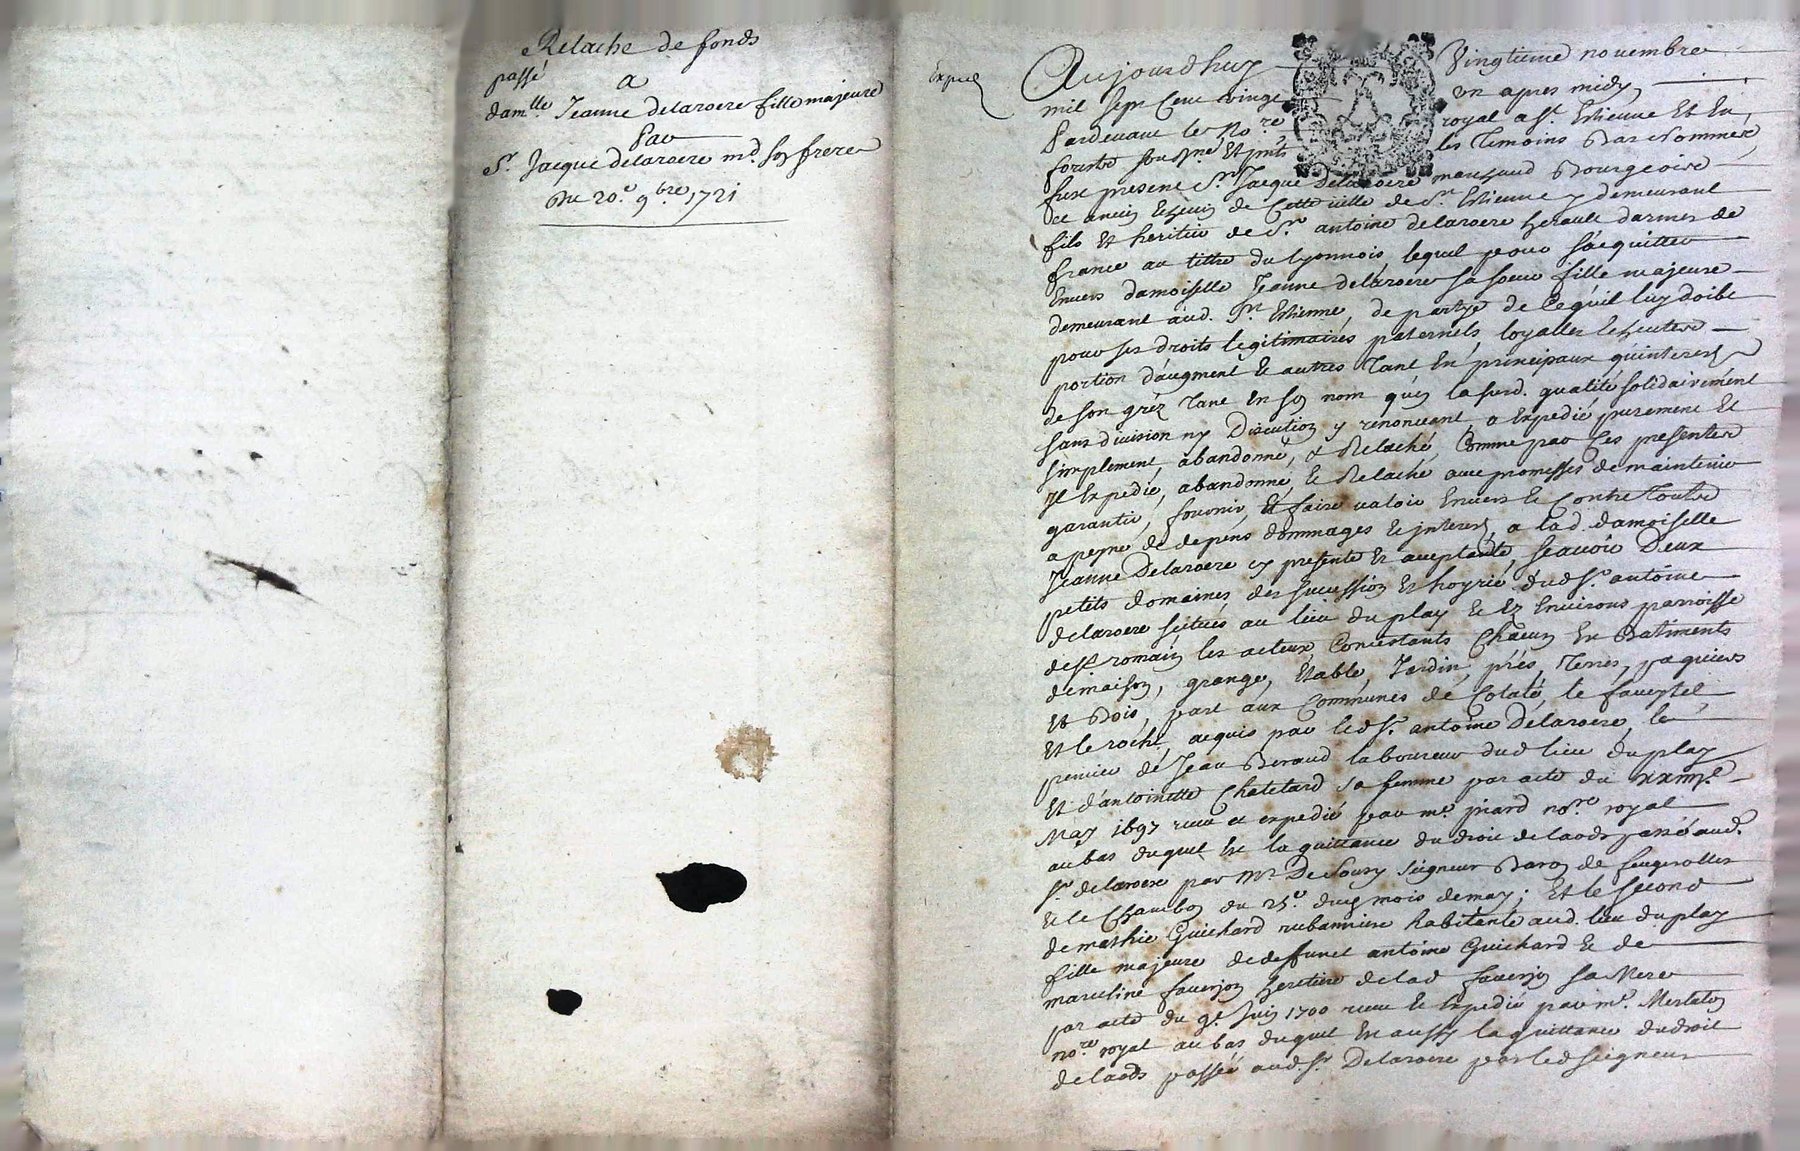 Relache de fonds
passé
a
damlle. Jeanne delaroere fille majeure
Par
Sr. Jacque delaroere md. son frere
Du 20e. 9bre 1721
Expdié
Aujourdhuy vingtieme novembre
mil sept cent vingt un apres midy,
Pardevant le Nore. royal a St. Estienne Et En
forests soussigné Et pnts les Temoins Bas Nommez
fust present Sr. Jacque Delaroere marchand Bourgeois
et ancien Echevin de Cette ville de St. Estienne y demeurant
fils Et heritier de Sr. antoine delaroere herault darmes de
france au tittre du Lyonnois, lequel pour s'acquitter
Envers damoiselle Jeanne delaroere sa soeur fille majeure
demeurant aud. St. Estienne, de partye de Ce qu'il luy doibt
pour ses droits legitimaires paternels, loyalles
portion d'augment & autres Tant En principaux qu'interest
de son gréz Tant En son nom qu'en la susd. qualité solidairement
sans division ny Discution y renonceant, a Expedié purement Et
simplement, abandonné, & Relaché, Comme par Ces presentes
Il Expedie, abandonne, & Relache avec promesses de maintenir
garantir, fournir, Et faire valoir Envers & Contre Toutes
a peyne de depens, dommages & interest, a lad. damoiselle
Jeanne Delaroere cy presente Et acceptante Scavoir Deux
petits domaines des succession Et hoyrie dud Sr. antoine
delaroere scitués au lieu du play & Ez Environs parroisse
de St. romain les Concistants Chacun En Batiments
de maison, grange, Etable, Jardin, prés, Terres, paquiers
Et Bois, part aux Communes de
Et le roché, acquis par led Sr. antoine Delaroere, le
premier de Jean Beraud laboureur dud lieu du play
Et d'antoinette Chatelard sa femme par acte du
May 1697 receu et expedié par me. piard nore. royal
au bas duquel Est la quittance du droit de laods passé aud.
Sr. delaroere par Mr. De Soucy Seigneur Baron de feugerolles
& le Chambon du 25e. dud mois de may; Et le second
de mathie Guichard rubanniere habitante aud. lieu du play
fille majeure de deffunct antoine Guichard & de
marceline faverjon heritiere de lad faverjon sa Mere
par acte du 9e. Juin 1700 receu & Expedié par me. Merlaton
nore. royal au bas duquel Est aussy la quittance du droit
de laods passée aud. Sr. Delaroere par led seigneur